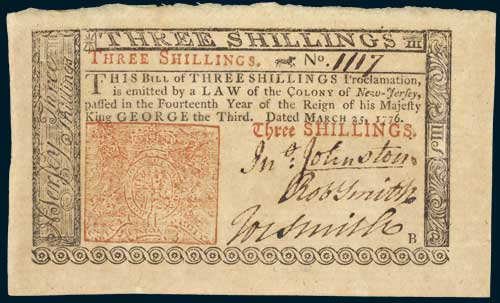 THREE SHILLINGS III
THREE SHILLINGS. No. 1117
THIS BILL of THREE SHILLINGS Proclamation,
is emitted by a LAW of the COLONY of New-Jersey,
passed in the Fourteenth Year of the Reign of his Majesty
King GEORGE the Third. Dated MARCH 25, 1776.
Three SHILLINGS.
Jno. Johnston
Rob Smith
Jos Smith
B
N Jersey Three Shillings
IIIS